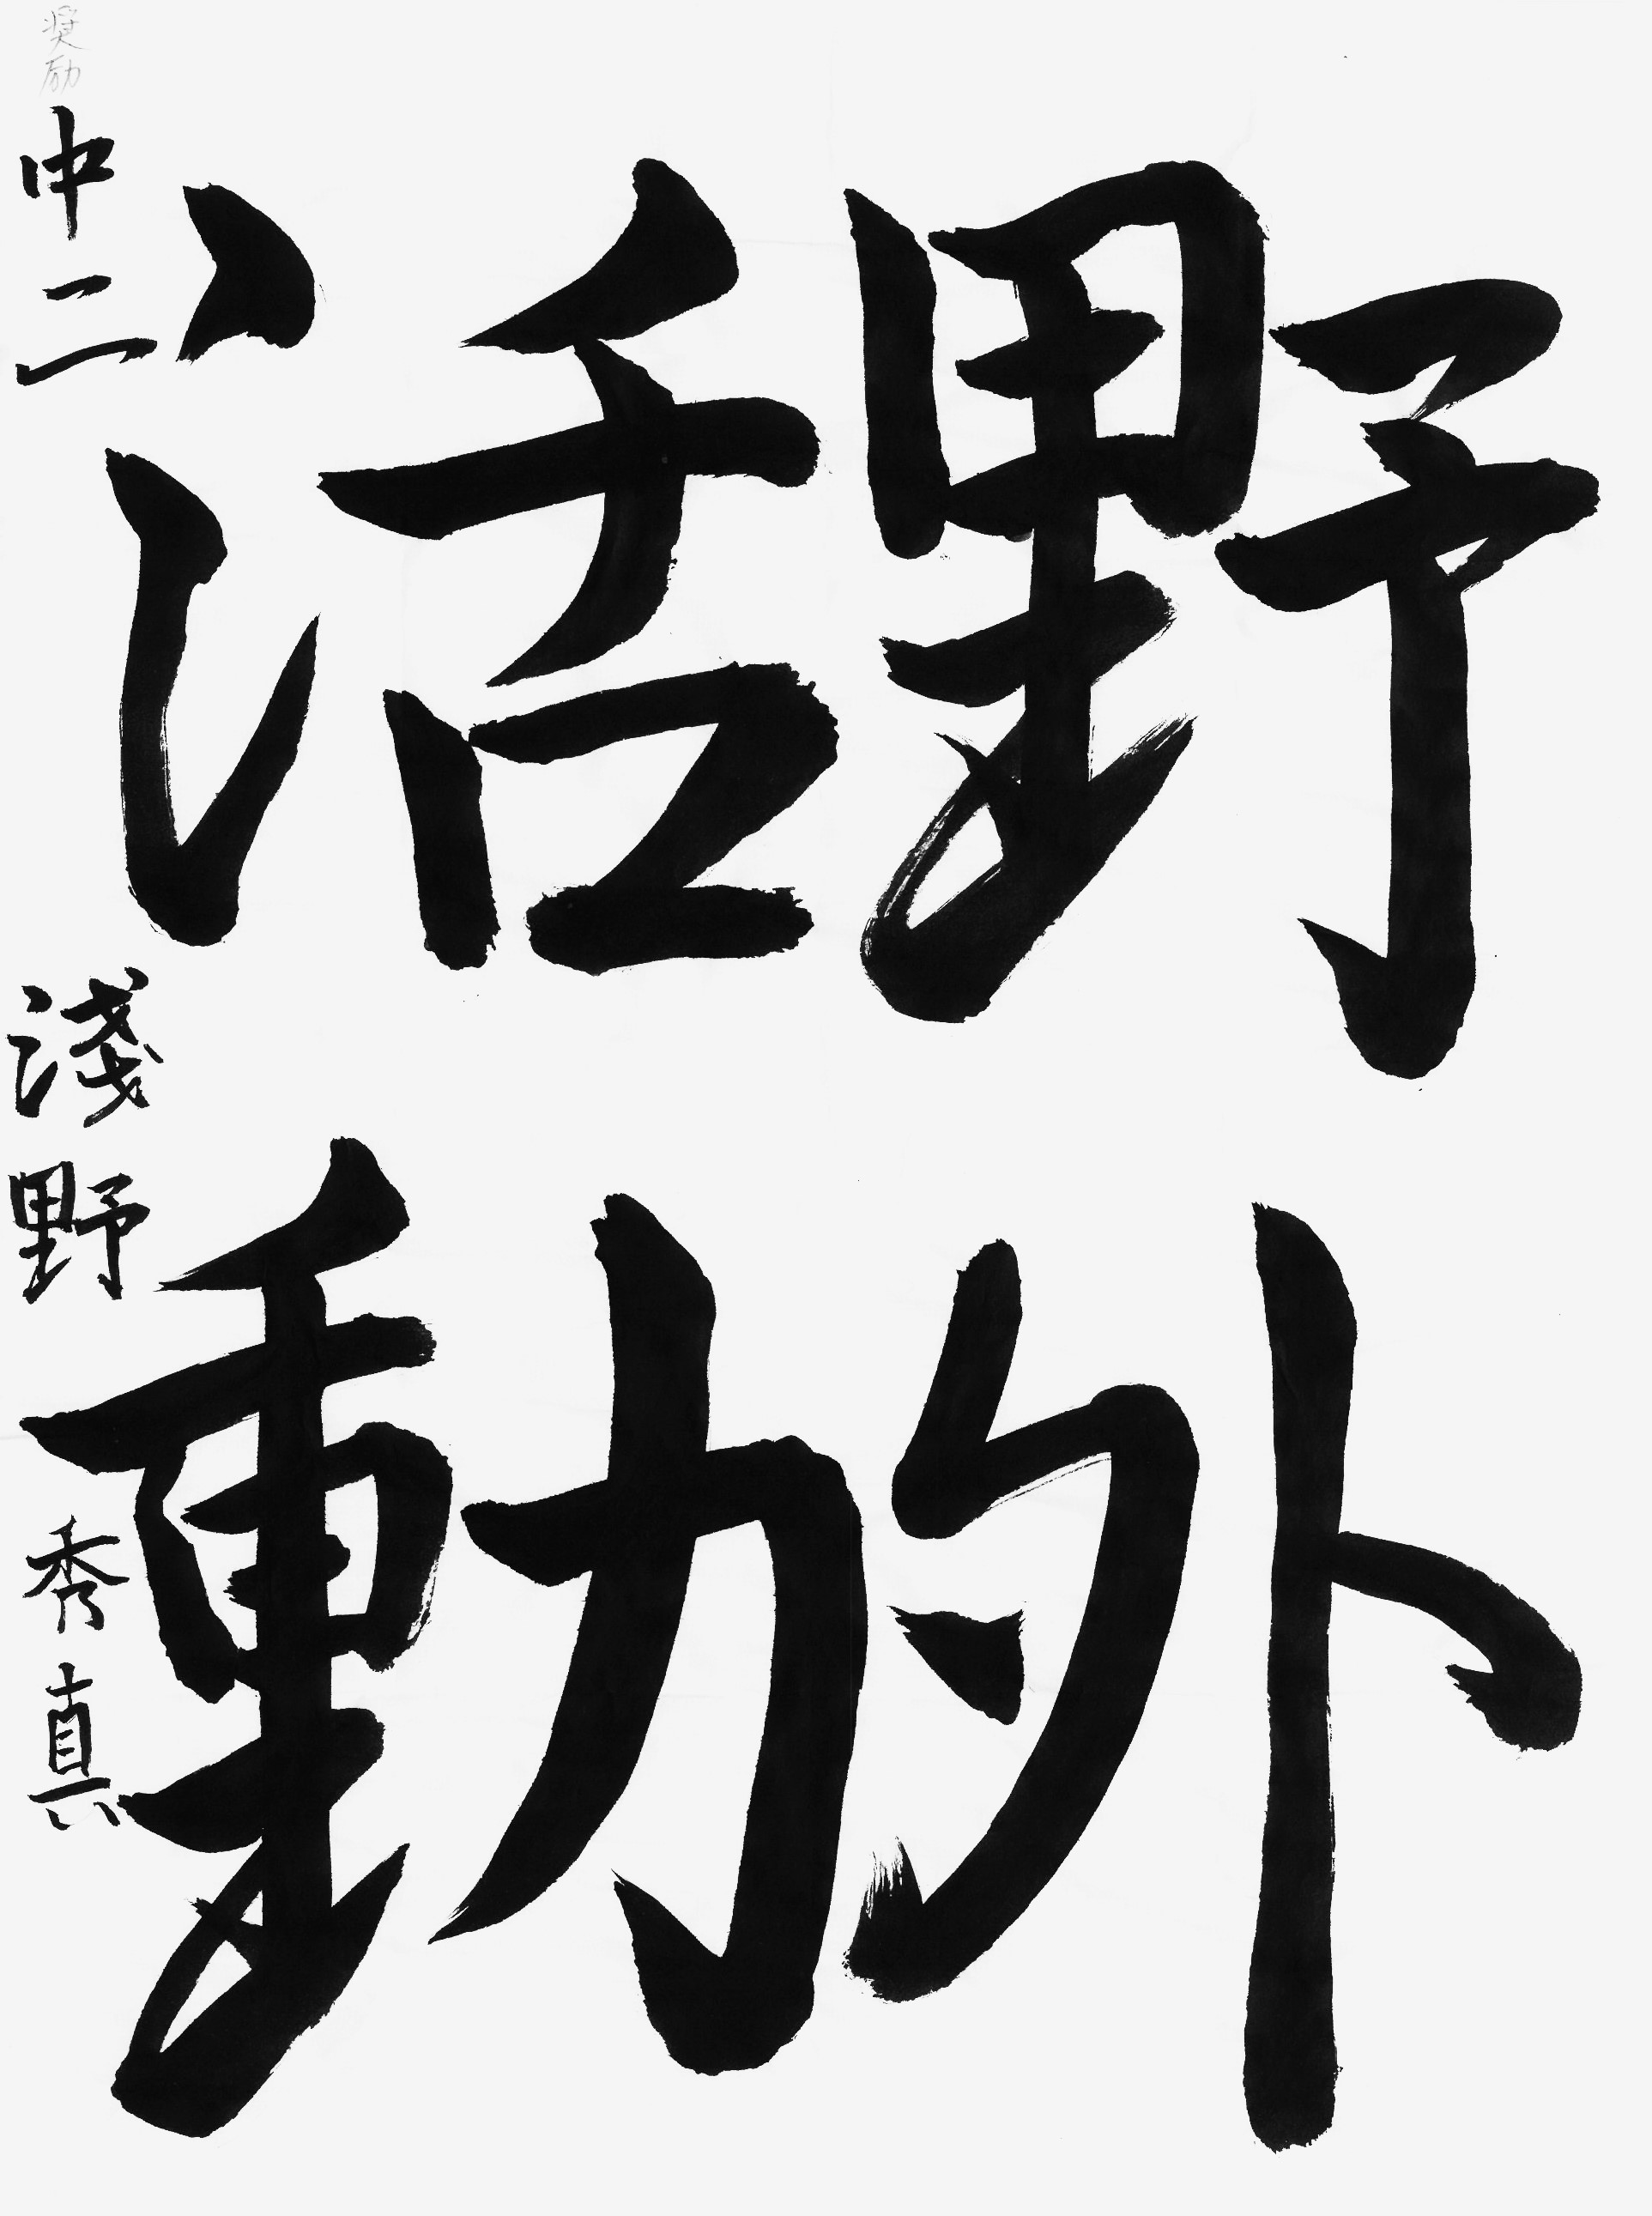 野外
活動
奨励
中二 淺野秀真